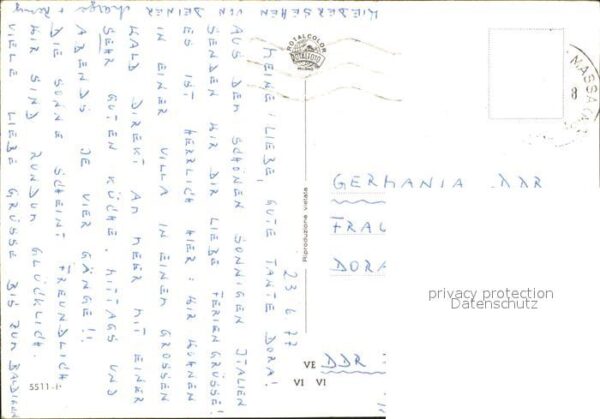 23 6 77
MEINE LIEBE, GUTE TANTE DORA!
AUS DEM SCHÖNEN SONNIGEN ITALIEN
SENDEN WIR DIR LIEBE FERIENGRÜSSE!
ES IST HERRLICH HIER. WIR WOHNEN
IN EINER VILLA IN EINEM GROSSEN
WALD DIREKT AM MEER MIT EINER
SEHR GUTEN KÜCHE. MITTAGS UND
ABENDS JE VIER GÄNGE!!
DIE SONNE SCHEINT FREUNDLICH
WIR SIND RUNDUM GLÜCKLICH.
VIELE LIEBE GRÜSSE BIS ZUM BALDIGEN
WIEDERSEHEN VON DEINER
ROTALCOLOR
ROTALFOTO
MILANO
MASSA
8
GERMANIA DDR
FRAU
DORA
privacy protection
Datenschutz
Riproduzione vietata
VE DDR
VI VI
5511-I